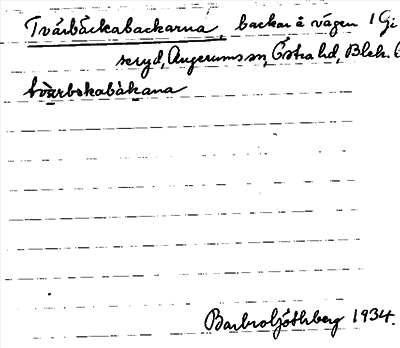 Tvärbäckabackarna, backar å vägen 1 Gi
seryd, Augerums sn, Östra hd, Blek.
tvärbekabåkana
Barbro Ljöthberg 1934.